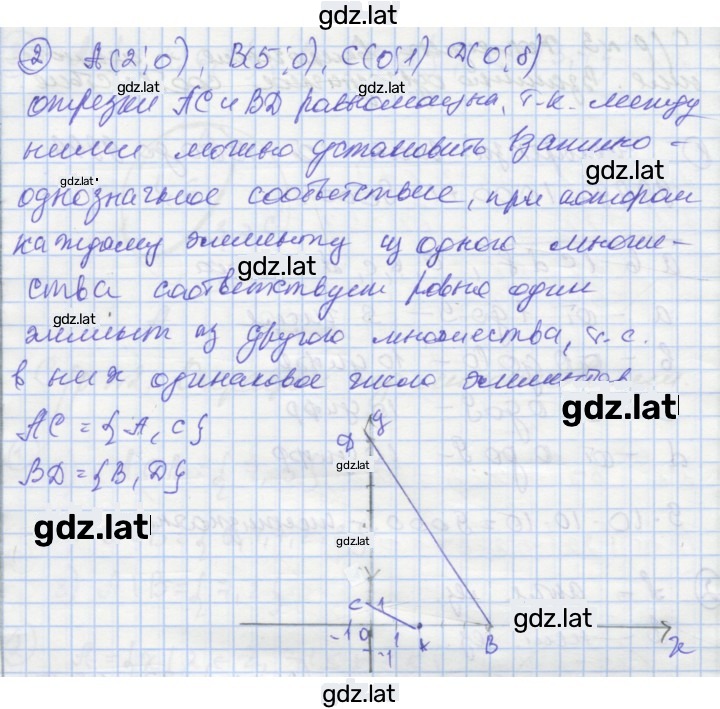 gdz.latt
gdz.latt
② A(2;0), B(5;0), C(0;1) D(0;8)
gdz.latt
gdz.latt
отрезки AC и BD равномощны, т.к. между
ними можно установить взаимно-
gdz.latt
gdz.latt
однозначное соответствие, при котором
каждому элементу из одного множе-
gdz.latt
ства соответствует ровно один
gdz.latt
элемент из другого множества, т.е.
в них одинаковое число элементов
gdz.latt
AC = {A, C}
BD = {B, D}
y
D
gdz.latt
gdz.latt
gdz.latt
C 1
gdz.latt
-1 0 1 B x
-1
gdz.latt